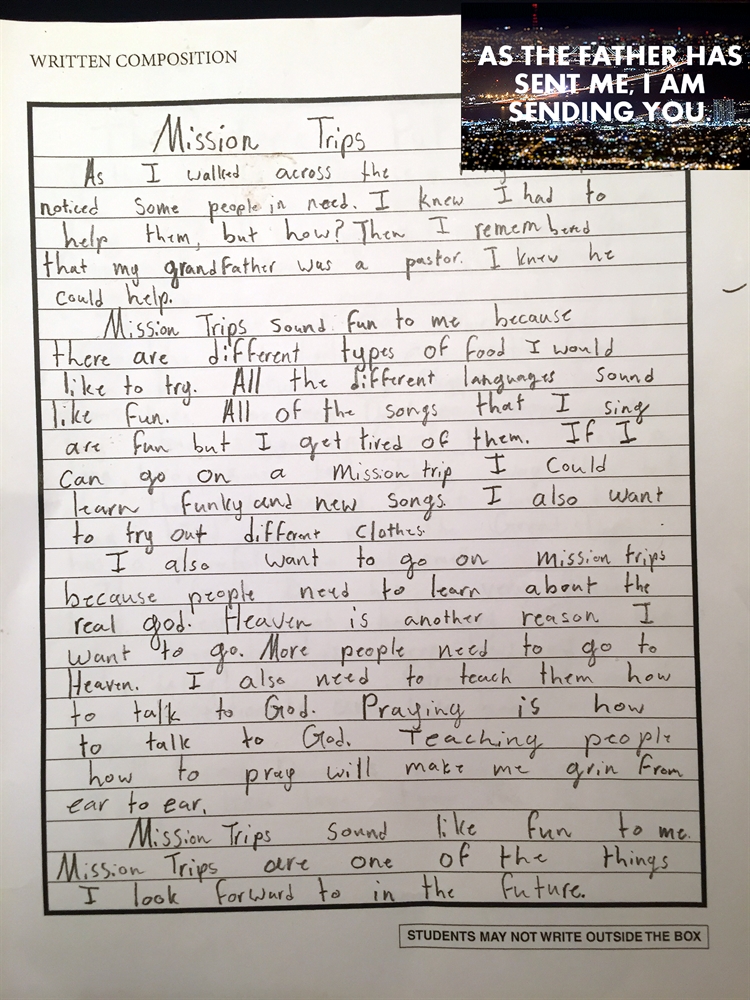 WRITTEN COMPOSITION
AS THE FATHER HAS
SENT ME, I AM
SENDING YOU.
Mission Trips
As I walked across the
noticed some people in need. I knew I had to
help them, but how? Then I rememberd
that my grandfather was a pastor. I knew he
could help.
Mission Trips sound fun to me because
there are different types of food I would
like to try. All the different languages sound
like fun. All of the songs that I sing
are fun but I get tired of them. If I
can go on a mission trip I could
learn funky and new songs. I also want
to try out different clothes.
I also want to go on mission trips
because people need to learn about the
real god. Heaven is another reason I
want to go. More people need to go to
Heaven. I also need to teach them how
to talk to God. Praying is how
to talk to God. Teaching people
how to pray will make me grin from
ear to ear.
Mission Trips sound like fun to me.
Mission Trips are one of the things
I look forward to in the future.
STUDENTS MAY NOT WRITE OUTSIDE THE BOX